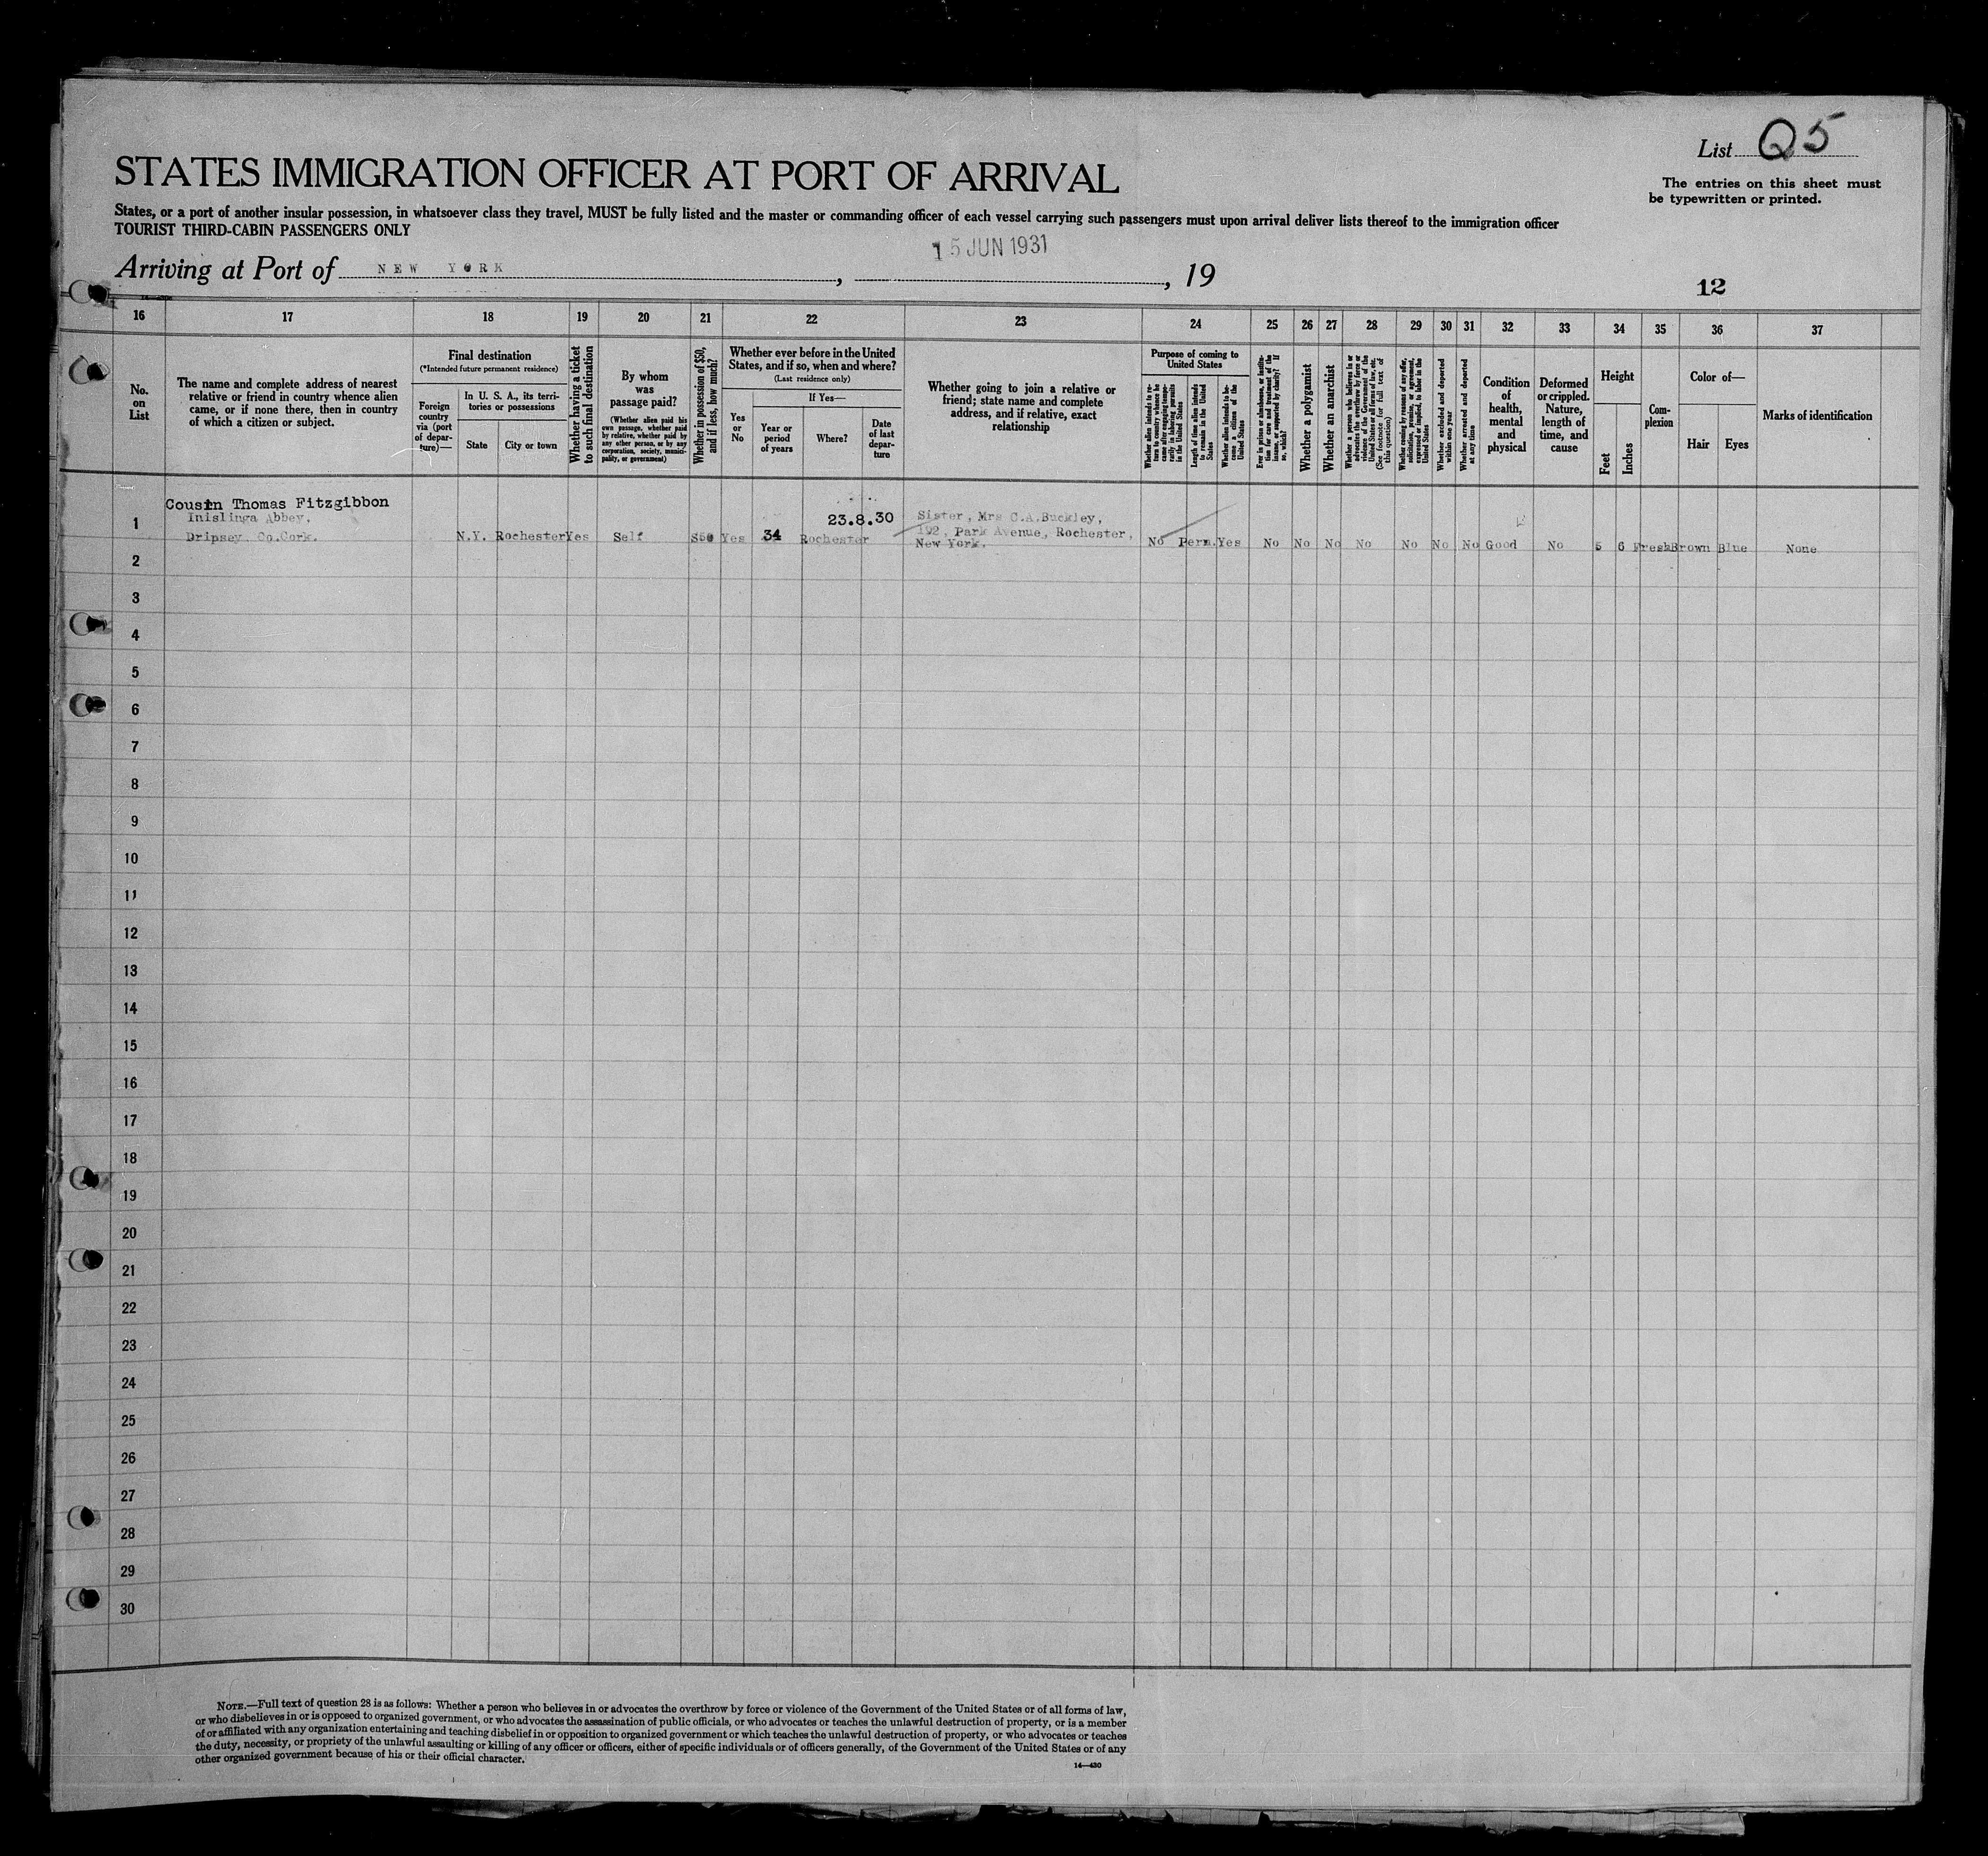 List Q5
The entries on this sheet must
be typewritten or printed.
STATES IMMIGRATION OFFICER AT PORT OF ARRIVAL
States, or a port of another insular possession, in whatsoever class they travel, MUST be fully listed and the master or commanding officer of each vessel carrying such passengers must upon arrival deliver lists thereof to the immigration officer
TOURIST THIRD-CABIN PASSENGERS ONLY
15 JUN 1931
Arriving at Port of NEW YORK, , 19
12
16 17 18 19 20 21 22 23 24 25 26 27 28 29 30 31 32 33 34 35 36 37
No.
on
List
The name and complete address of nearest
relative or friend in country whence alien
came, or if none there, then in country
of which a citizen or subject.
Final destination
(*Intended future permanent residence)
Foreign
country
via (port
of depar-
ture)—
In U. S. A., its terri-
tories or possessions
State
City or town
Whether having a ticket
to such final destination
By whom
was
passage paid?
(Whether alien paid his
own passage, whether paid
by relative, whether paid by
any other person, or by any
corporation, society, munici-
pality, or government)
Whether in possession of $50,
and if less, how much?
Whether ever before in the United
States, and if so, when and where?
(Last residence only)
Yes
or
No
If Yes—
Year or
period
of years
Where?
Date
of last
depar-
ture
Whether going to join a relative or
friend; state name and complete
address, and if relative, exact
relationship
Purpose of coming to
United States
Whether alien intends to re-
turn to country whence he
came after engaging tempo-
rarily in laboring pursuits
in the United States
Length of time alien intends
to remain in the United
States
Whether alien intends to be-
come a citizen of the
United States
Ever in prison or almshouse, or institu-
tion for care and treatment of the
insane, or supported by charity? If
so, which?
Whether a polygamist
Whether an anarchist
Whether a person who believes in or
advocates the overthrow by force or
violence of the Government of the
United States or all forms of law, etc.
(See footnote for full text of
this question)
Whether coming by reason of any offer,
solicitation, promise, or agreement,
expressed or implied, to labor in the
United States
Whether excluded and deported
within one year
Whether arrested and deported
at any time
Condition
of
health,
mental
and
physical
Deformed
or crippled.
Nature,
length of
time, and
cause
Height
Feet
Inches
Com-
plexion
Color of—
Hair
Eyes
Marks of identification
Cousin Thomas Fitzgibbon
Inislinga Abbey,
Dripsey, Co.Cork.
1
N.Y. Rochester Yes Self $50 Yes 34 Rochester
23.8.30
Sister, Mrs C.A.Buckley,
192, Park Avenue, Rochester,
New York.
No Perm. Yes No No No No No No No Good No 5 6 Fresh Brown Blue None
2
3
4
5
6
7
8
9
10
11
12
13
14
15
16
17
18
19
20
21
22
23
24
25
26
27
28
29
30
NOTE.—Full text of question 28 is as follows: Whether a person who believes in or advocates the overthrow by force or violence of the Government of the United States or of all forms of law,
or who disbelieves in or is opposed to organized government, or who advocates the assassination of public officials, or who advocates or teaches the unlawful destruction of property, or is a member
of or affiliated with any organization entertaining and teaching disbelief in or opposition to organized government or which teaches the unlawful destruction of property, or who advocates or teaches
the duty, necessity, or propriety of the unlawful assaulting or killing of any officer or officers, either of specific individuals or of officers generally, of the Government of the United States or of any
other organized government because of his or their official character.
14—430